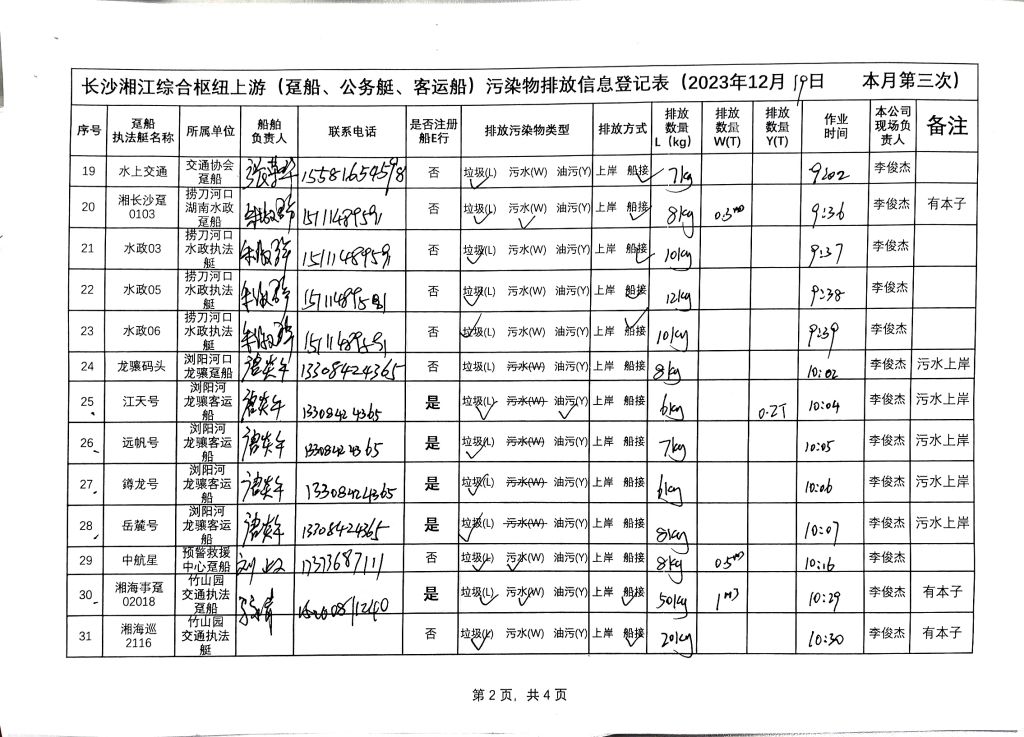 长沙湘江综合枢纽上游（趸船、公务艇、客运船）污染物排放信息登记表（2023年12月19日 本月第三次）
序号 趸船执法艇名称 所属单位 船舶负责人 联系电话 是否注册船E行 排放污染物类型 排放方式 排放数量L（kg） 排放数量W(T) 排放数量Y(T) 作业时间 本公司现场负责人 备注
19 水上交通 交通协会趸船 15581654598 否 垃圾(L) 污水(W) 油污(Y) 上岸 船接 7kg 9:02 李俊杰
20 湘长沙趸0103 捞刀河口湖南水政趸船 15111489591 否 垃圾(L) 污水(W) 油污(Y) 上岸 船接 8kg 0.5m3 9:36 李俊杰 有本子
21 水政03 捞刀河口水政执法艇 15111489591 否 垃圾(L) 污水(W) 油污(Y) 上岸 船接 10kg 9:37 李俊杰
22 水政05 捞刀河口水政执法艇 15111489591 否 垃圾(L) 污水(W) 油污(Y) 上岸 船接 12kg 9:38 李俊杰
23 水政06 捞刀河口水政执法艇 15111489591 否 垃圾(L) 污水(W) 油污(Y) 上岸 船接 10kg 9:39 李俊杰
24 龙骧码头 浏阳河口龙骧趸船 13308424365 否 垃圾(L) 污水(W) 油污(Y) 上岸 船接 8kg 10:02 李俊杰 污水上岸
25 江天号 浏阳河龙骧客运船 13308424365 是 垃圾(L) 污水(W) 油污(Y) 上岸 船接 6kg 0.2T 10:04 李俊杰 污水上岸
26 远帆号 浏阳河龙骧客运船 13308424365 是 垃圾(L) 污水(W) 油污(Y) 上岸 船接 7kg 10:05 李俊杰 污水上岸
27 鐏龙号 浏阳河龙骧客运船 13308424365 是 垃圾(L) 污水(W) 油污(Y) 上岸 船接 6kg 10:06 李俊杰 污水上岸
28 岳麓号 浏阳河龙骧客运船 13308424365 是 垃圾(L) 污水(W) 油污(Y) 上岸 船接 8kg 10:07 李俊杰 污水上岸
29 中航星 预警救援中心趸船 17373687111 否 垃圾(L) 污水(W) 油污(Y) 上岸 船接 8kg 0.5m3 10:16 李俊杰
30 湘海事趸02018 竹山园交通执法趸船 是 垃圾(L) 污水(W) 油污(Y) 上岸 船接 50kg 1m3 10:29 李俊杰 有本子
31 湘海巡2116 竹山园交通执法艇 否 垃圾(L) 污水(W) 油污(Y) 上岸 船接 20kg 10:30 李俊杰 有本子
第 2 页，共 4 页